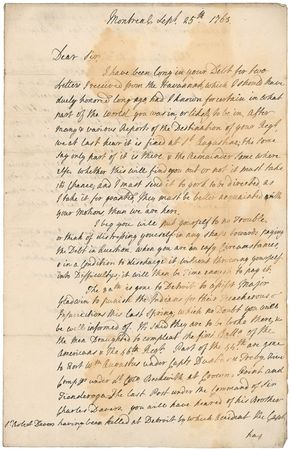 Montreal, Sept. 25th 1763
Dear Sir
I have been long in your Debt for two
Letters I received from the Havannah, which I should have
duly honored long ago had I known for certain in what
part of the world you was in or likely to be in, after
many & various Reports of the Destination of your Regt.
we at last hear it is fixed at St. Augustine, tho some
say only part of it is there & the Remainder some where
else. whether this will find you out or not it must take
its chance, and I must send it to
take it for granted they must be better acquainted with
your motions than we are here.
I beg you will put yourself to no trouble,
or think of distressing yourself in any shape towards paying
the Debt in Question, when you are in easy Circumstances,
& in a Condition to discharge it without throwing yourself
into Difficultys, it will then be time enough to pay it.
The is gone to Detroit to assist Major
Gladwin to punish the Indians for their Treacherous
this last Spring, which no doubt you will
be well informed of. tis said they are to be broke there, &
the men Draughted to compleat the first Batts. of the
Americans & the 46th Regt. Part of the are gone
to Fort Wm. Augustus under Capt. two
Compys. under Lt. Coll. at Crown Point and
Ticonderoga. The last Post under the Command of Sir
Charles Davers, you will have heared of his Brother
Sr. Robert Davers having been killed at Detroit by which Accident the Capt.
has